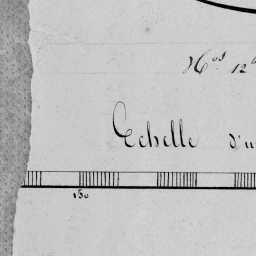 N.os 12
Echelle d'u
150